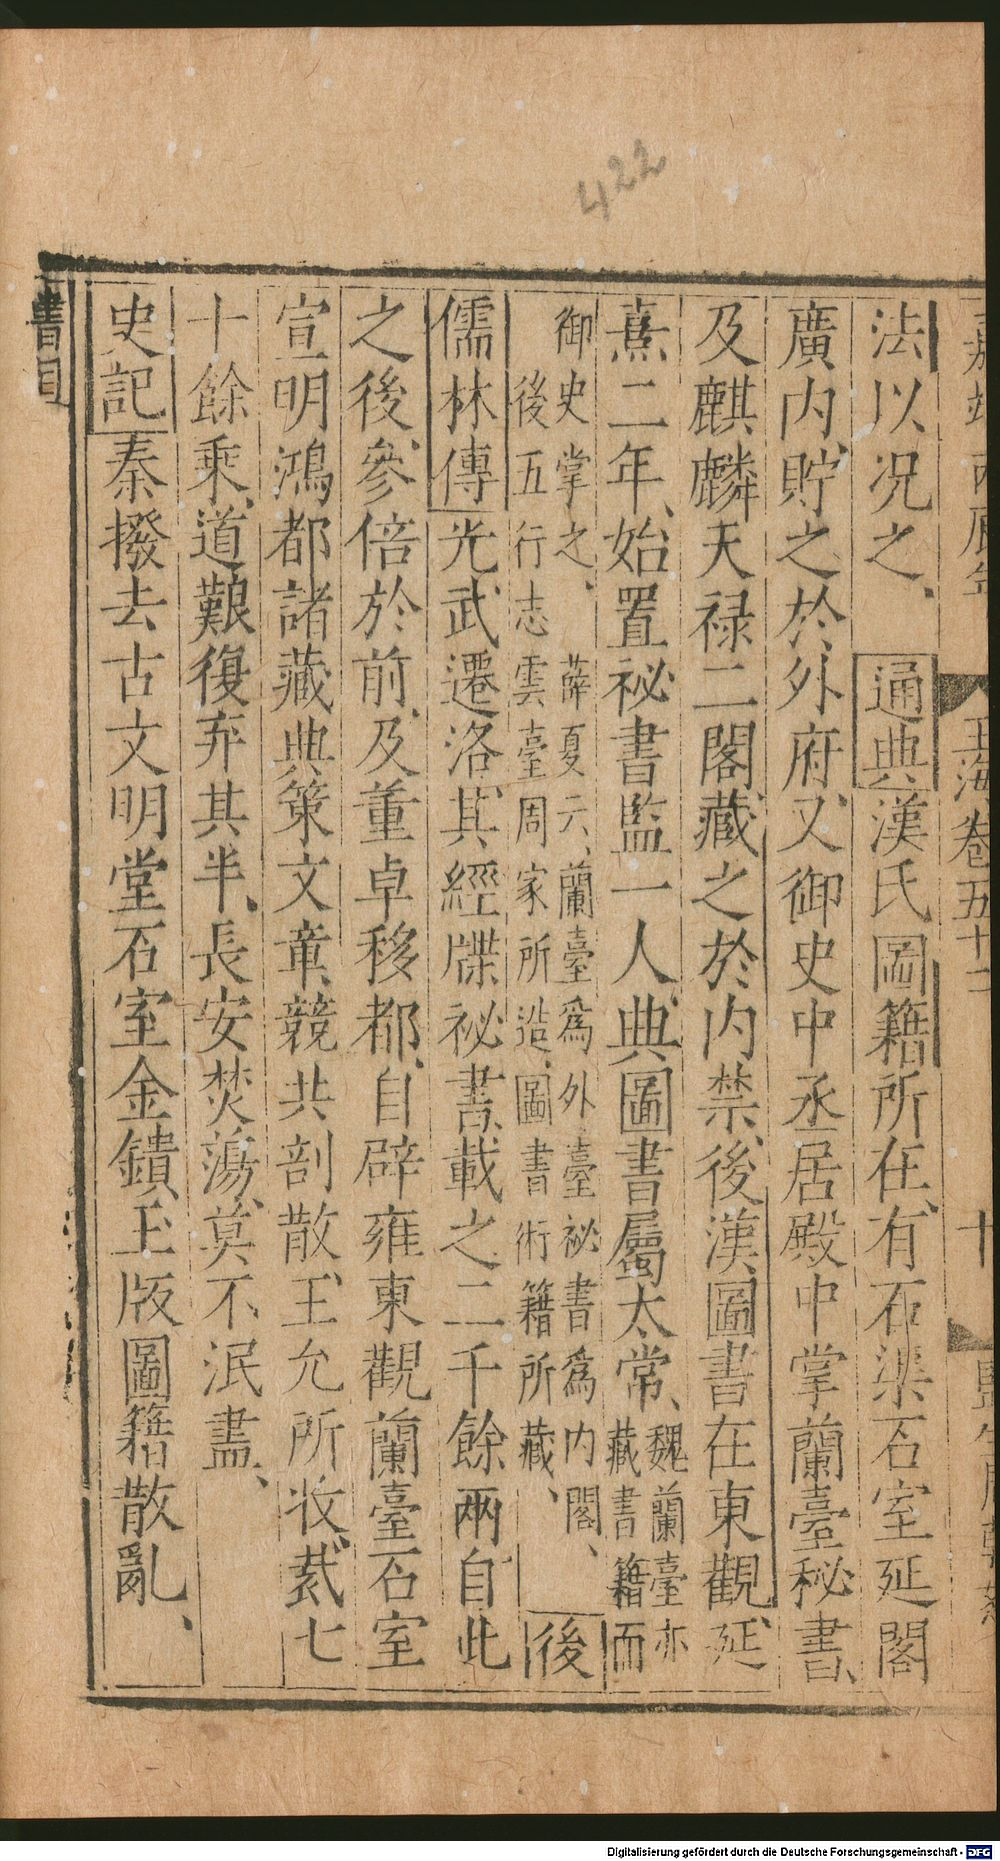 422
玉海卷五十二
十
法以况之、通典漢氏圖籍所在有石渠石室延閣
廣内貯之於外府又御史中丞居殿中掌蘭臺秘書
及麒麟天禄二閣藏之於内禁後漢圖書在東觀延
熹二年始置祕書監一人典圖書屬太常、魏蘭臺亦
藏書籍而
御史掌之、薛夏云蘭臺爲外臺祕書爲内閣、
後五行志雲臺周家所造圖書術籍所藏、後
儒林傳光武遷洛其經牒祕書載之二千餘兩自此
之後參倍於前及董卓移都自辟雍東觀蘭臺石室
宣明鴻都諸藏典策文章競共剖散王允所收裁七
十餘乘道艱復弃其半長安焚蕩莫不泯盡、
史記秦撥去古文明堂石室金鐀玉版圖籍散亂、
書目
Digitalisierung gefördert durch die Deutsche Forschungsgemeinschaft - DFG